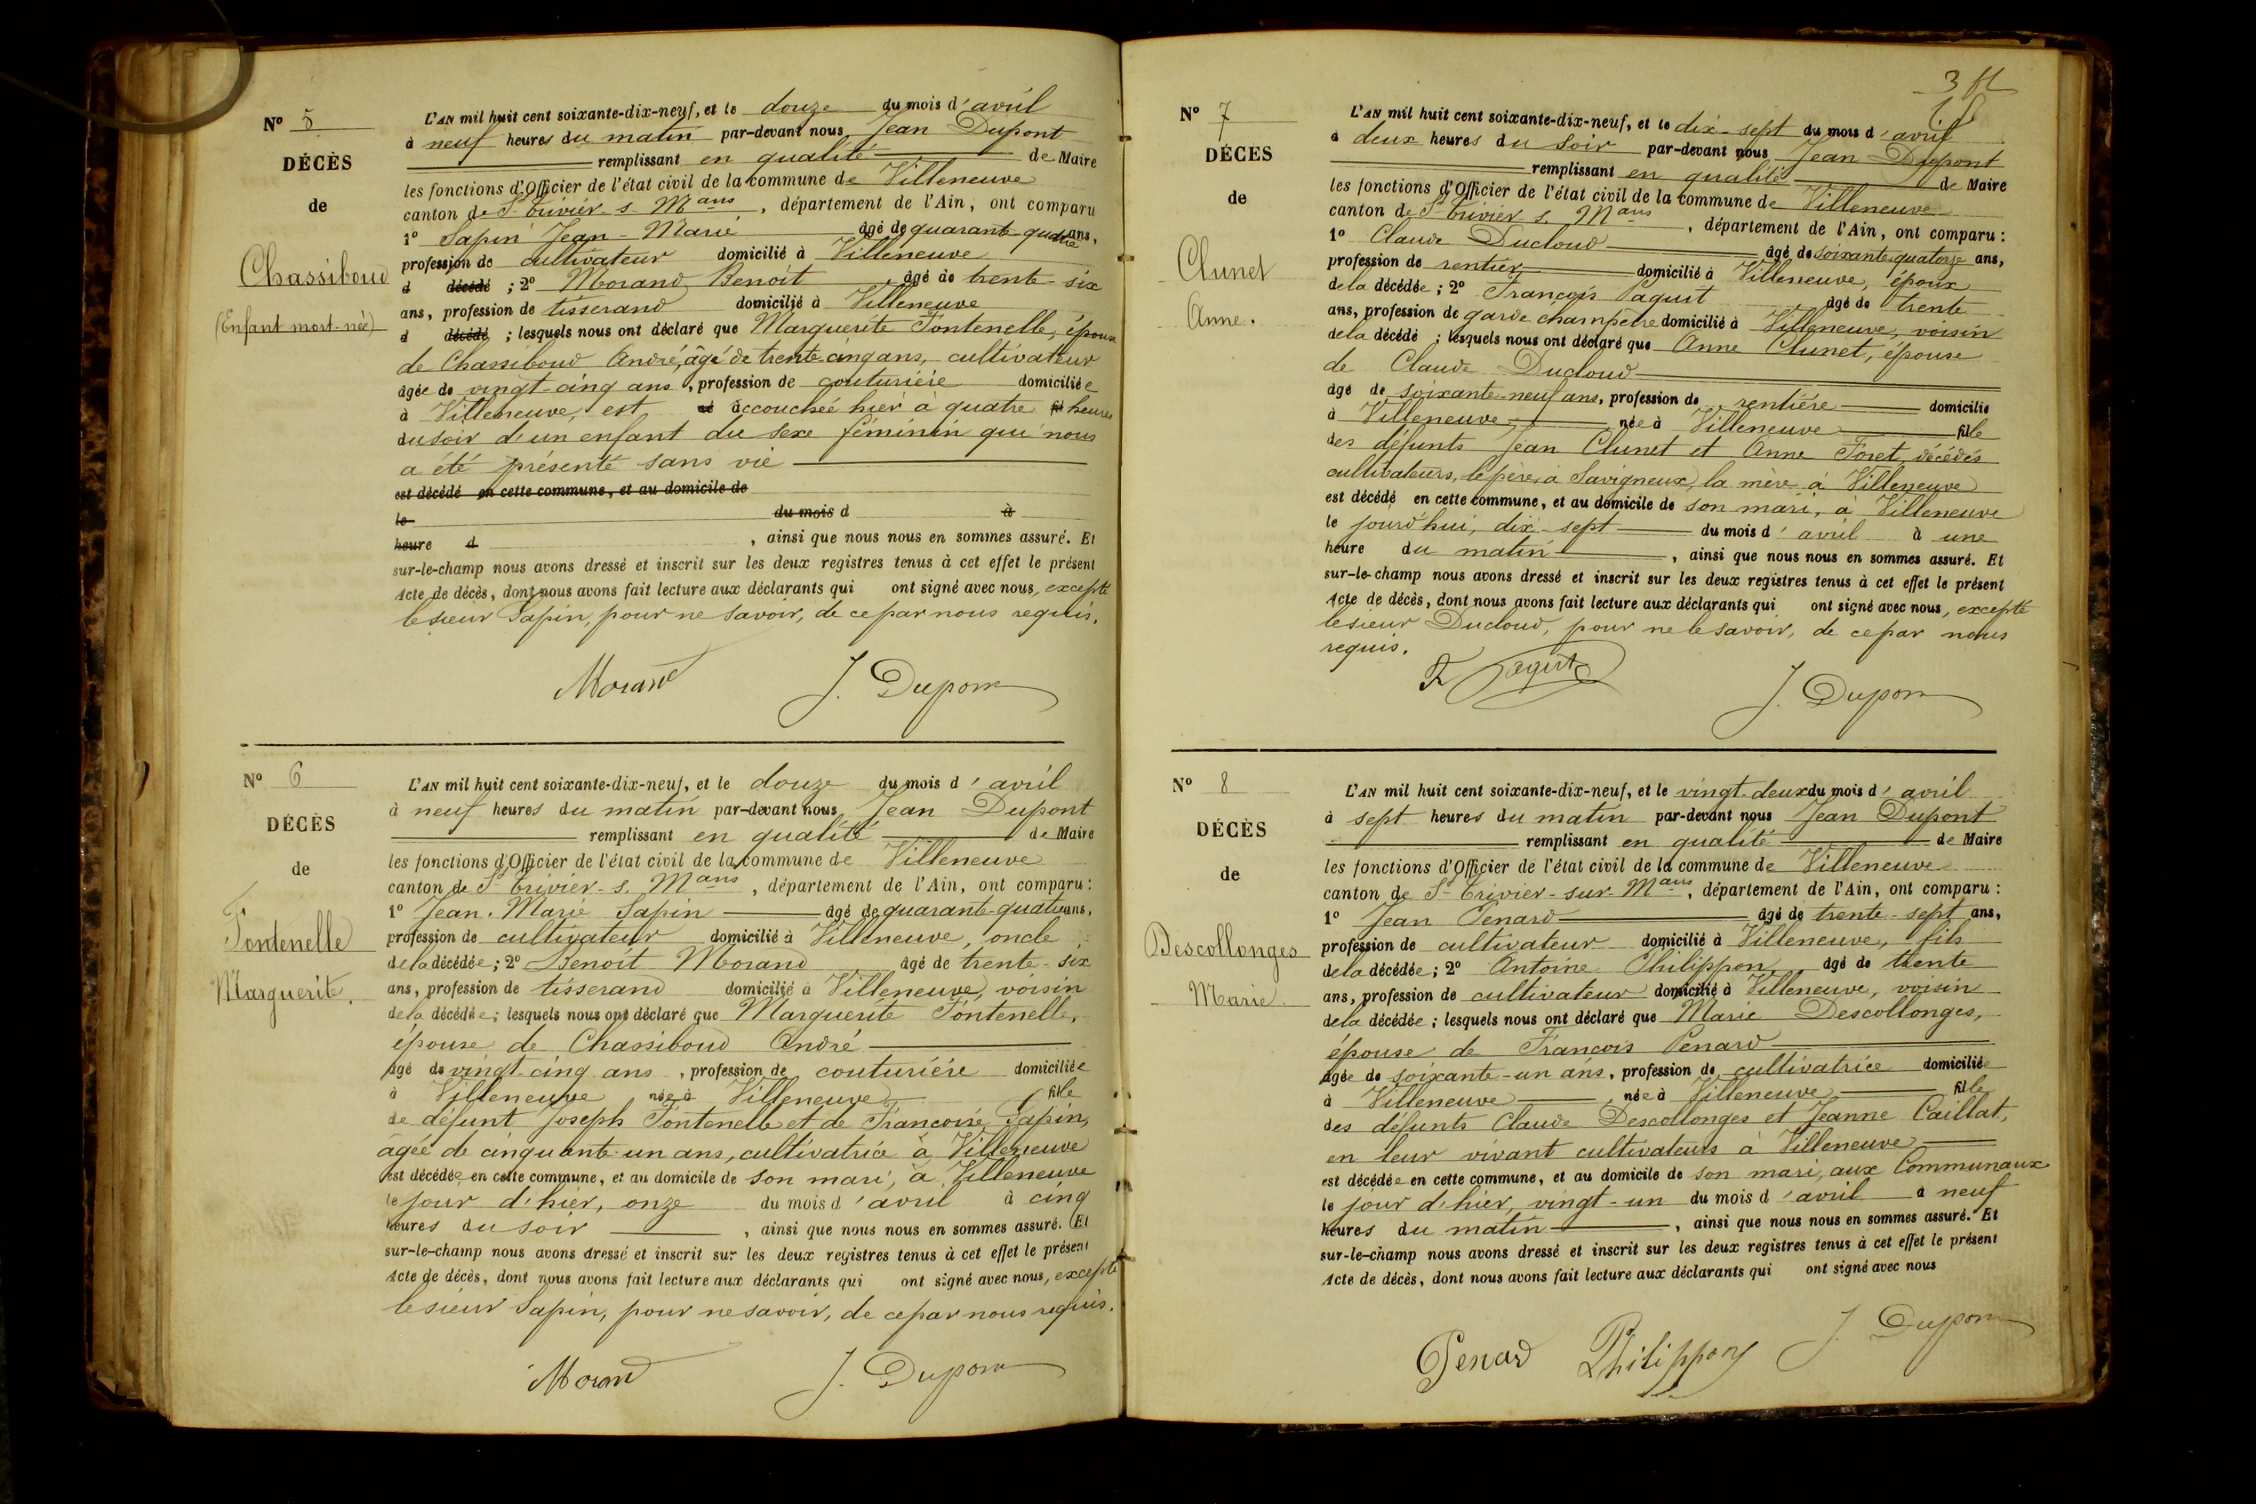 Nº 5
DÉCÈS
de
Chassiboud
(Enfant mort-né)
L'AN mil huit cent soixante-dix-neuf, et le douze du mois d'avril
à neuf heures du matin par-devant nous Jean Dupont
remplissant en qualité de Maire
les fonctions d'Officier de l'état civil de la commune de Villeneuve
canton de St Trivier s. Mans, département de l'Ain, ont comparu
1º Sapin Jean-Marie âgé de quarante-quatre ans,
profession de cultivateur domicilié à Villeneuve
d décédé ; 2º Morand Benoit âgé de trente-six
ans, profession de tisserand domicilié à Villeneuve
d décédé ; lesquels nous ont déclaré que Marguerite Fontenelle, épouse
de Chassiboud André, âgé de trente-cinq ans, cultivateur
âgée de vingt-cinq ans, profession de couturiére domiciliée
à Villeneuve, est né accouchée hier à quatre fil heures
du soir d'un enfant du sexe féminin qui nous
a été présenté sans vie
est décédé en cette commune, et au domicile de
le du mois d à
heure d , ainsi que nous nous en sommes assuré. Et
sur-le-champ nous avons dressé et inscrit sur les deux registres tenus à cet effet le présent
Acte de décès, dont nous avons fait lecture aux déclarants qui ont signé avec nous, excepté
le sieur Sapin, pour ne savoir, de ce par nous requis.
Morand J. Dupont
Nº 6
DÉCÈS
de
Fontenelle
Marguerite.
L'AN mil huit cent soixante-dix-neuf, et le douze du mois d'avril
à neuf heures du matin par-devant nous Jean Dupont
remplissant en qualité de Maire
les fonctions d'Officier de l'état civil de la commune de Villeneuve
canton de St Trivier-s. Mans, département de l'Ain, ont comparu :
1º Jean-Marie Sapin âgé de quarante-quatre ans,
profession de cultivateur domicilié à Villeneuve, oncle
de la décédée ; 2º Benoit Morand âgé de trente-six
ans, profession de tisserand domicilié à Villeneuve, voisin
de la décédée ; lesquels nous ont déclaré que Marguerite Fontenelle,
épouse de Chassiboud André
âgé de vingt-cinq ans, profession de couturiére domiciliée
à Villeneuve née à Villeneuve fille
de défunt Joseph Fontenelle et de Françoise Sapin,
âgée de cinquante-un ans, cultivatrice à Villeneuve
est décédée en cette commune, et au domicile de son mari, à Villeneuve
le jour d'hier, onze du mois d'avril à cinq
heures du soir , ainsi que nous nous en sommes assuré. Et
sur-le-champ nous avons dressé et inscrit sur les deux registres tenus à cet effet le présent
Acte de décès, dont nous avons fait lecture aux déclarants qui ont signé avec nous, excepté
le sieur Sapin, pour ne savoir, de ce par nous requis.
Morand J. Dupont
3
Nº 7
DÉCES
de
Clunet
Anne.
L'AN mil huit cent soixante-dix-neuf, et le dix-sept du mois d'avril
à deux heures du soir par-devant nous Jean Dupont
remplissant en qualité de Maire
les fonctions d'Officier de l'état civil de la commune de Villeneuve
canton de St Trivier s. Mans, département de l'Ain, ont comparu :
1º Claude Ducloud âgé de soixante quatorze ans,
profession de rentier domicilié à Villeneuve, époux
de la décédée ; 2º François Paquit âgé de trente
ans, profession de garde champêtre domicilié à Villeneuve, voisin
de la décédé ; lesquels nous ont déclaré que Anne Clunet, épouse
de Claude Ducloud
âgé de soixante-neuf ans, profession de rentiére domicilié
à Villeneuve née à Villeneuve fille
des défunts Jean Clunet et Anne Foret, décédés
cultivateurs, le père à Savigneux, la mère à Villeneuve
est décédé en cette commune, et au domicile de son mari, à Villeneuve
le jourd'hui, dix-sept du mois d'avril à une
heure du matin , ainsi que nous nous en sommes assuré. Et
sur-le-champ nous avons dressé et inscrit sur les deux registres tenus à cet effet le présent
Acte de décès, dont nous avons fait lecture aux déclarants qui ont signé avec nous, excepté
le sieur Ducloud, pour ne le savoir, de ce par nous
requis.
F Paquit J. Dupont
Nº 8
DÉCÈS
de
Descollonges
Marie.
L'AN mil huit cent soixante-dix-neuf, et le vingt-deux du mois d'avril
à sept heures du matin par-devant nous Jean Dupont
remplissant en qualité de Maire
les fonctions d'Officier de l'état civil de la commune de Villeneuve
canton de St Trivier-sur-Mans, département de l'Ain, ont comparu :
1º Jean Penard âgé de trente-sept ans,
profession de cultivateur domicilié à Villeneuve, fils
de la décédée ; 2º Antoine Philippon, âgé de trente
ans, profession de cultivateur domicilié à Villeneuve, voisin
de la décédée ; lesquels nous ont déclaré que Marie Descollonges,
épouse de François Penard
âgée de soixante-un ans, profession de cultivatrice domiciliée
à Villeneuve , née à Villeneuve fille
des défunts Claude Descollonges et Jeanne Caillat,
en leur vivant cultivateurs à Villeneuve
est décédée en cette commune, et au domicile de son mari, aux Communaux
le jour d'hier, vingt-un du mois d'avril à neuf
heures du matin , ainsi que nous nous en sommes assuré. Et
sur-le-champ nous avons dressé et inscrit sur les deux registres tenus à cet effet le présent
Acte de décès, dont nous avons fait lecture aux déclarants qui ont signé avec nous
Penard Philippon J. Dupont